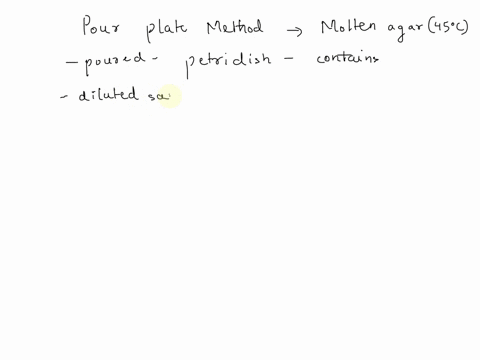 Pour plate Method → Molten agar (45°C)
- poured - petridish - contains
- diluted sa